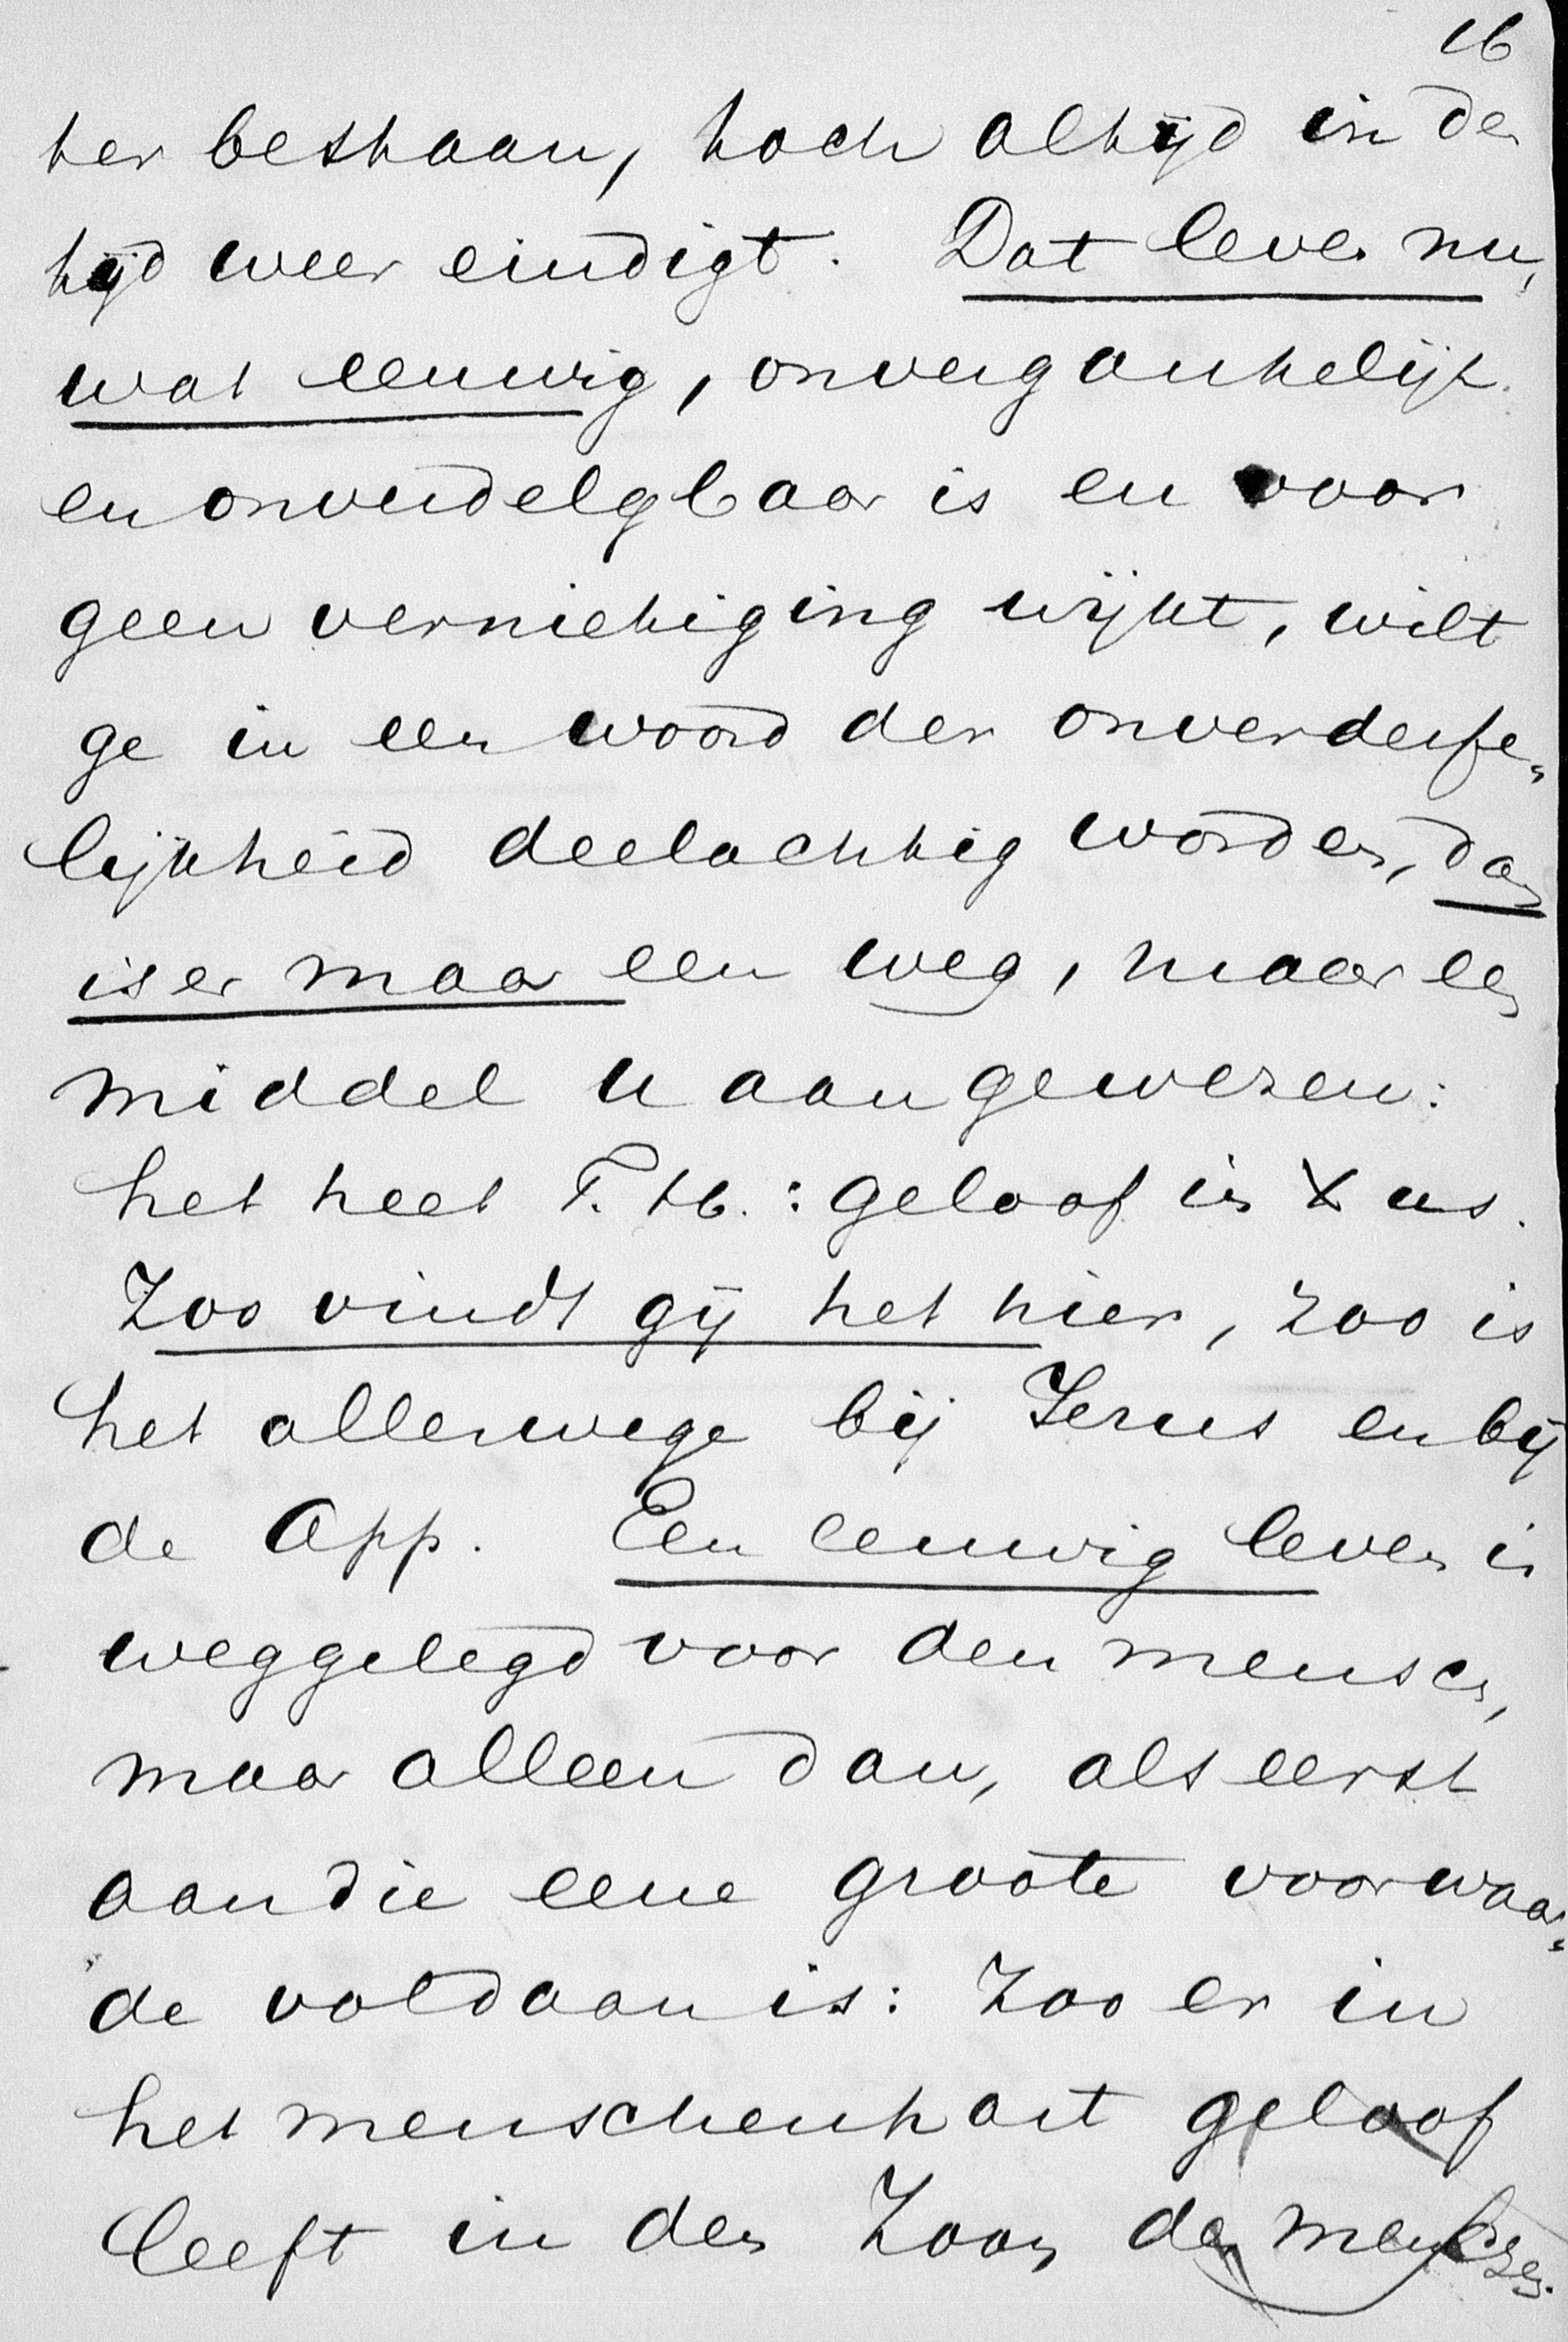 16
ter bestaan, toch altijd in de
tijd weer eindigt. Dat leven nu,
wat eeuwig, onvergankelijk
en onverdelgbaar is en voor
geen vernietiging wijkt, wilt
ge in een woord der onverderfe„
lijkheid deelachtig worden, dan
is er maar een weg, maar een
middel u aangewezen:
het heet T. H.: geloof in Xus.
Zoo vindt gij het hier, zoo is
het allerwege bij Jezus en bij
de App. Een eeuwig leven is
weggelegd voor den mensch,
maar alleen dan, als eerst
aan die eene groote voorwaar„
de voldaan is: zoo er in
het menschenhart geloof
leeft in den Zoon des menschen.